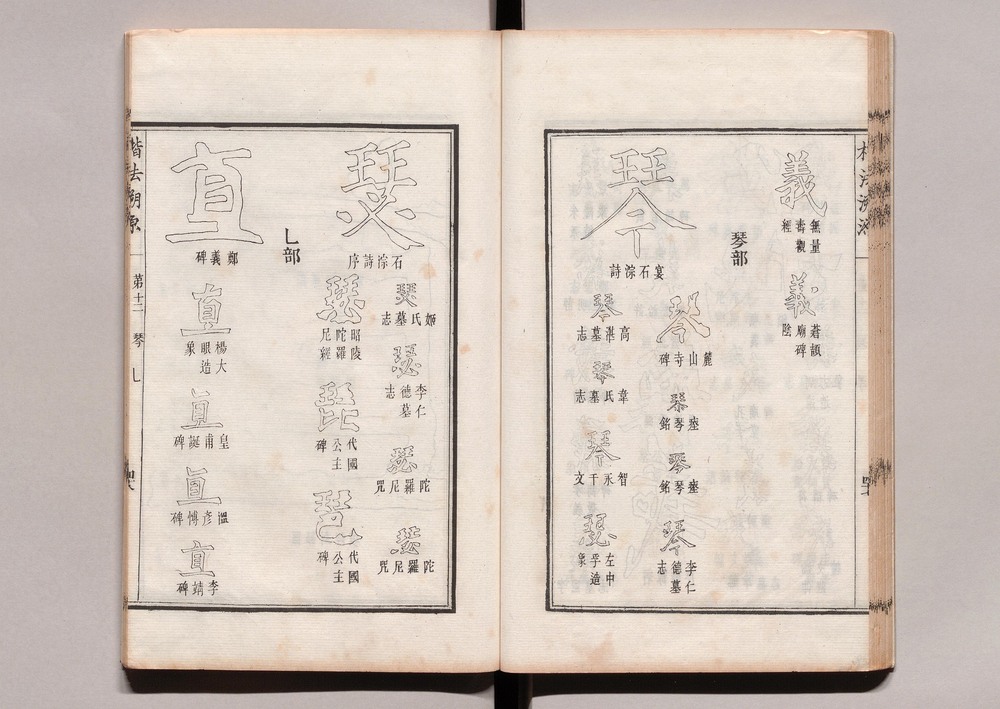 義
無量壽觀經
義
蒼頡廟碑陰
琴部
琴
宴石淙詩
琴
麓山寺碑
琴
琴銘
琴
琴銘
琴
李仁德墓志
琴
高湛墓志
琴
韋氏墓志
琴
智永千文
瑟
左中孚造象
瑟
石淙詩序
瑟
姬氏墓志
瑟
李仁德墓志
瑟
陀羅尼咒
瑟
陀羅尼咒
瑟
昭陵陀羅尼經
琵
代國公主碑
琶
代國公主碑
乚部
直
鄭義碑
直
楊大眼造象
直
皇甫誕碑
直
溫彥博碑
直
李靖碑
楷法溯源 第十二 琴 乚